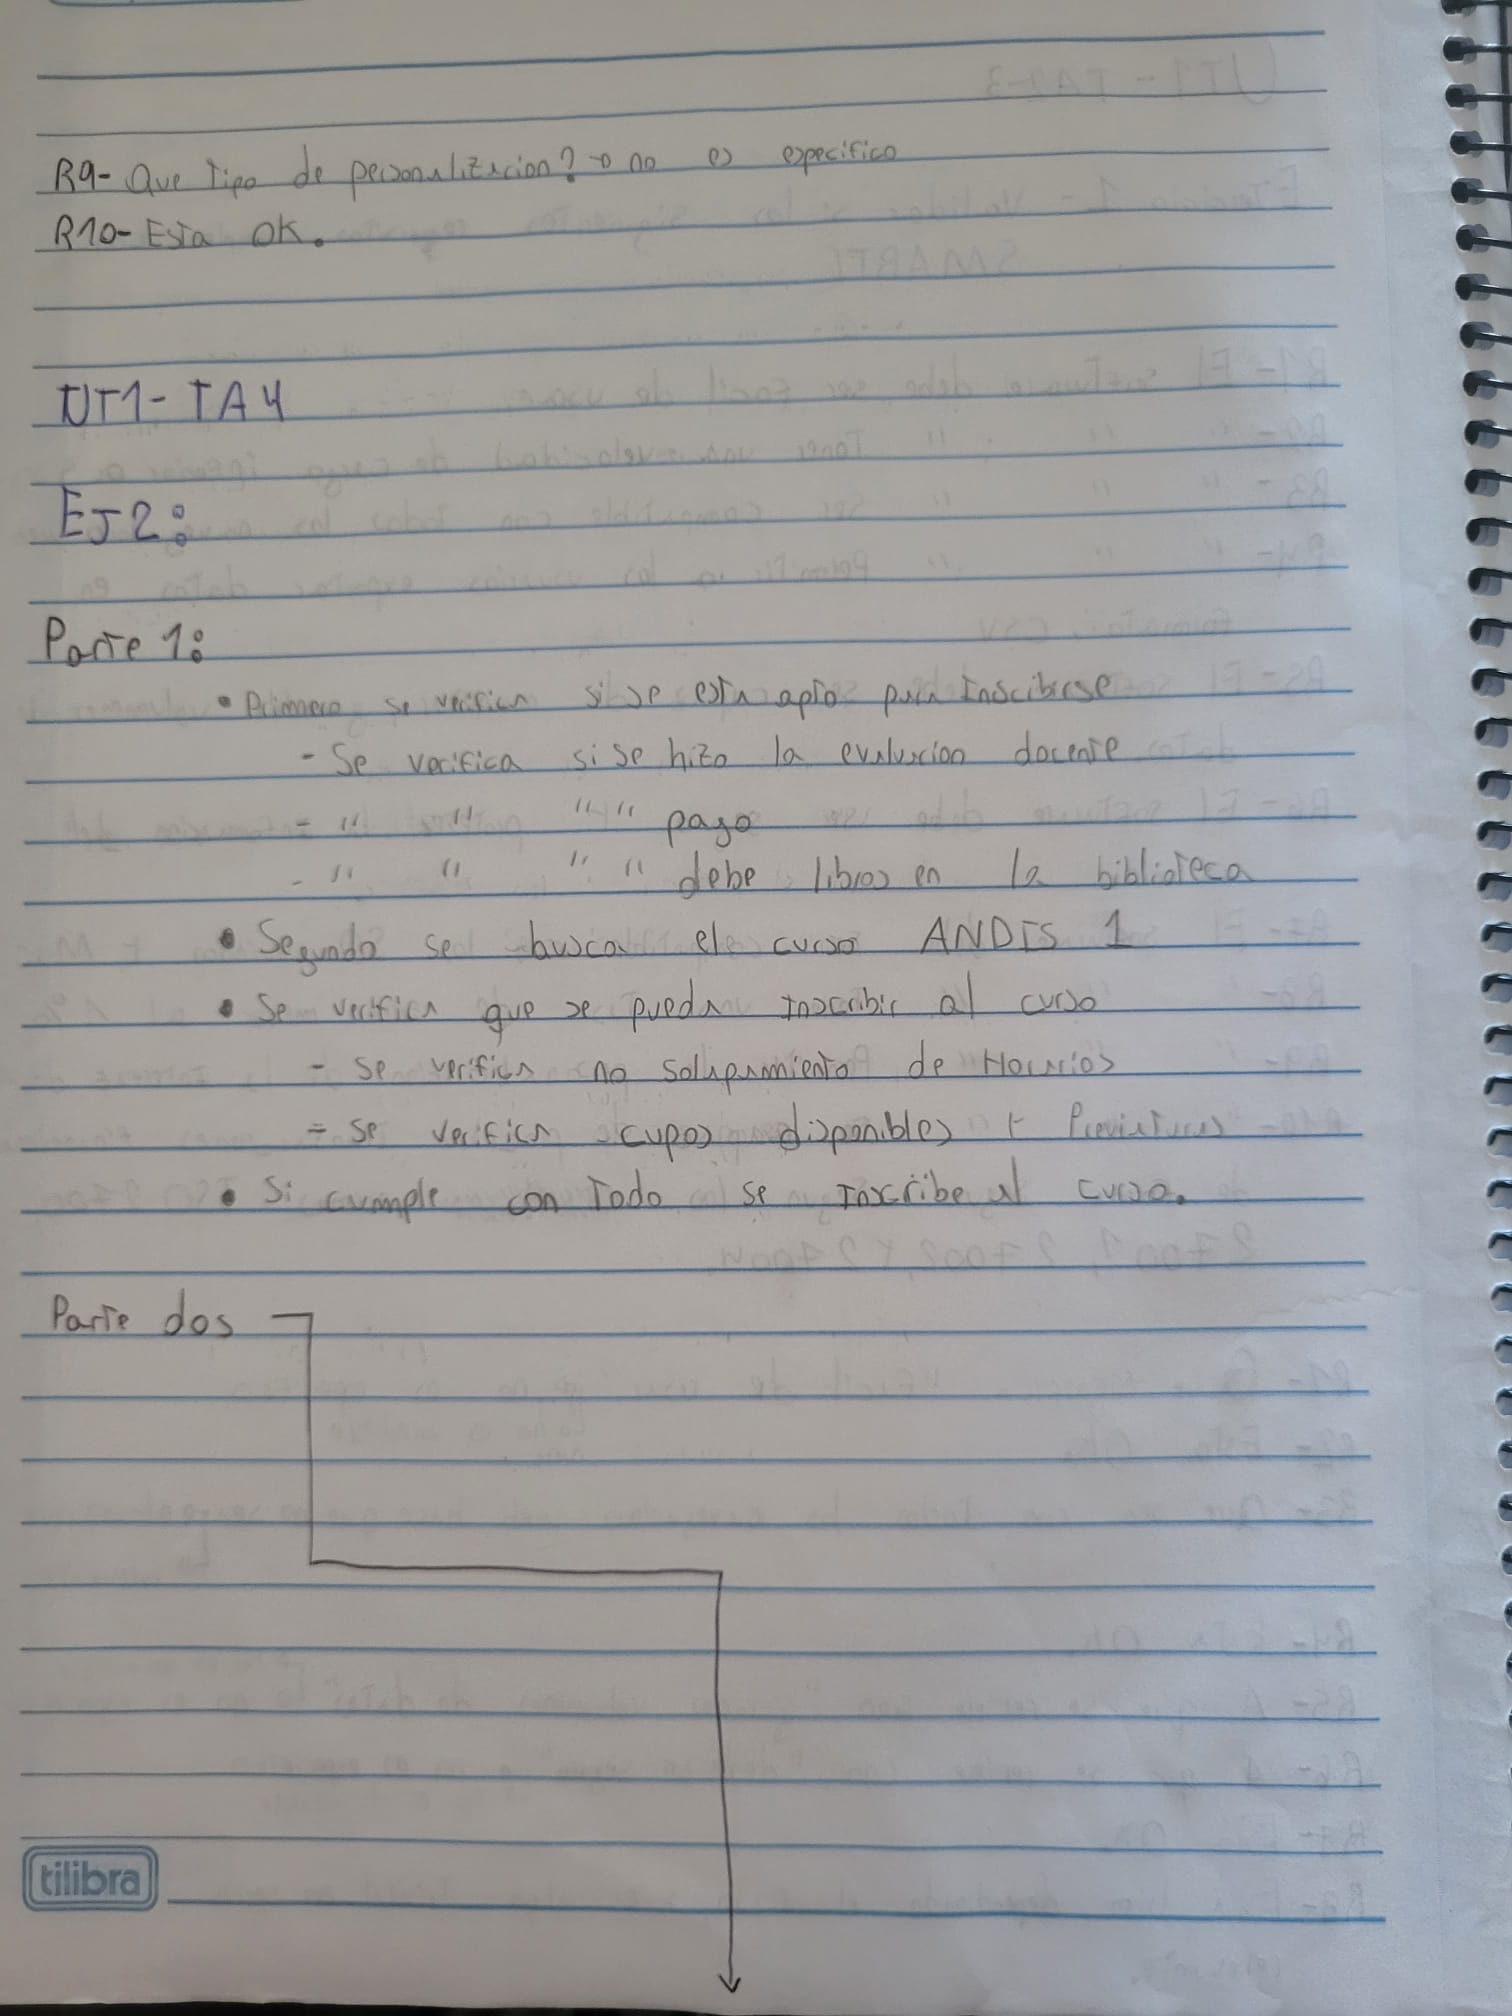 R9- Que Tipo de personalizacion? → no es especifico
R10- Esta OK.
UT1- TA4
EJ2:
Parte 1:
• Primero se verifica si se esta apto para Inscibirse
- Se verifica si se hizo la evaluacion docente
- " " " " pago
- " " " " debe libros en la biblioteca
• Segundo se busca el curso ANDIS 1
• Se verifica que se pueda Inscribir al curso
- Se verifica no solapamiento de Horarios
- Se verifica cupos disponibles + Previaturas
• Si cumple con Todo se Inscribe al curso.
Parte dos
tilibra